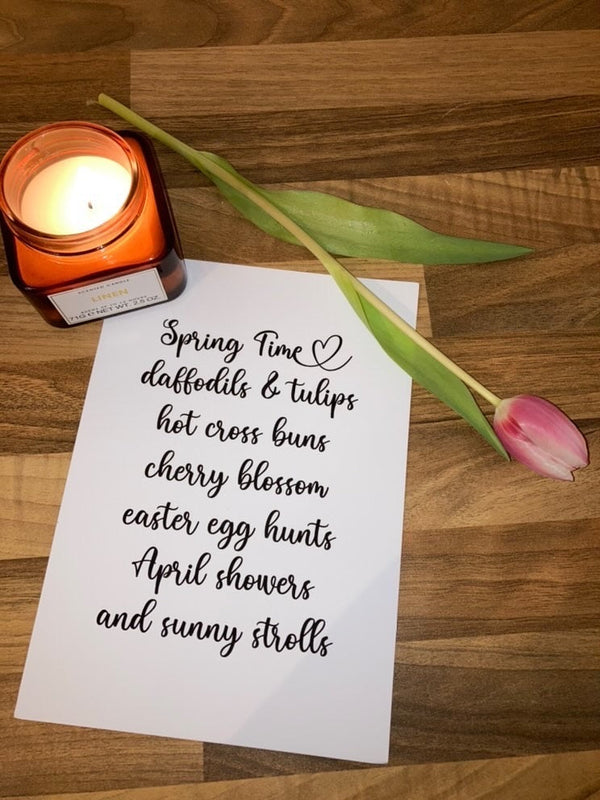 SCENTED CANDLE
LINEN
71G ℮ NET WT. 2.5 OZ.
Spring Time
daffodils & tulips
hot cross buns
cherry blossom
easter egg hunts
April showers
and sunny strolls